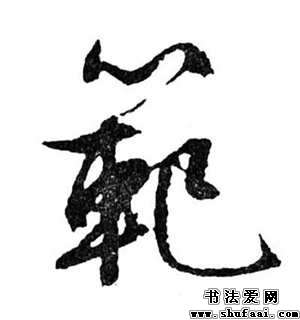 範
书法爱网
www.shufaai.com